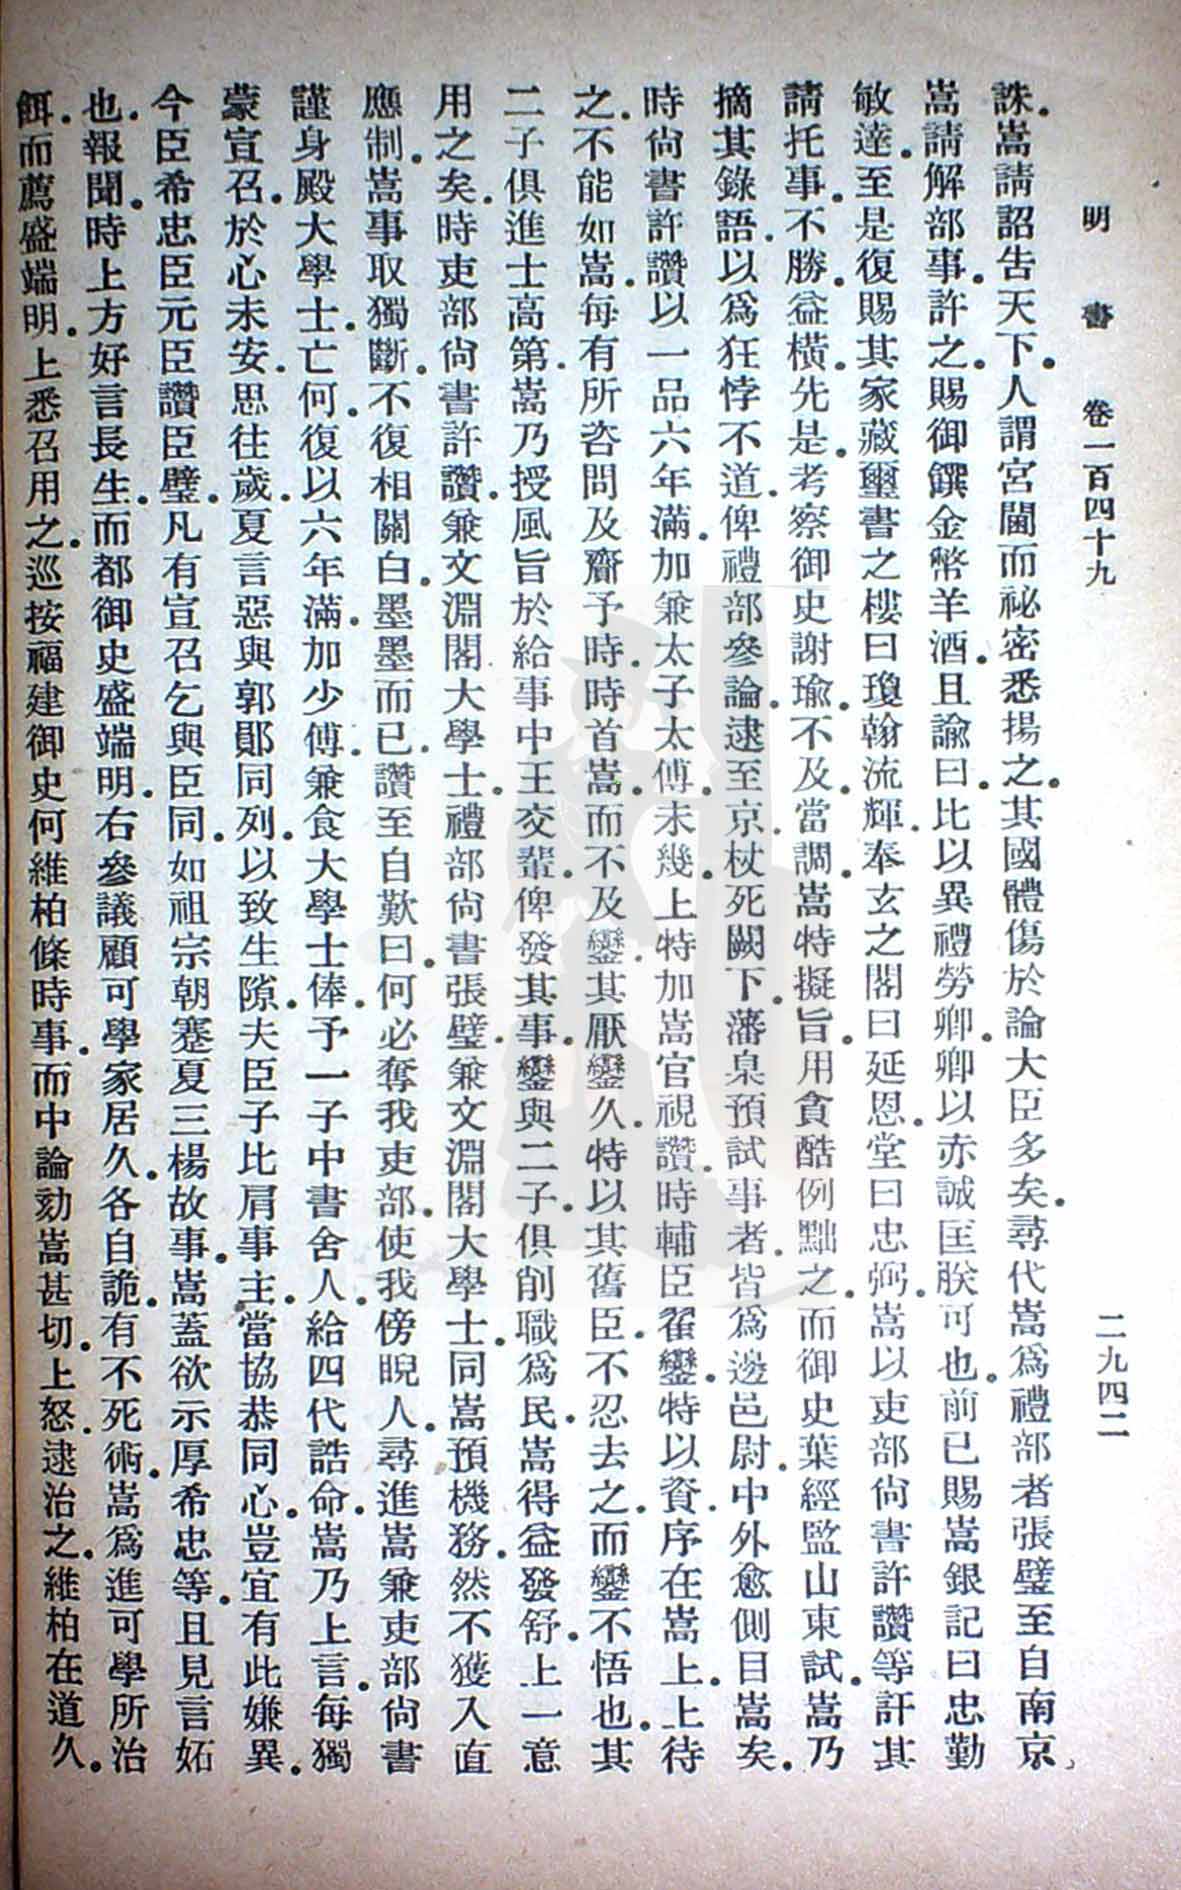 明書 卷一百四十九 二九四二
誅。嵩請詔告天下。人謂宮闈而祕密悉揚之。其國體傷於論大臣多矣。尋代嵩爲禮部者張璧至自南京。
嵩請解部事。許之。賜御饌金幣羊酒。且諭曰。比以異禮勞卿。卿以赤誠匡朕可也。前已賜嵩銀記曰忠勤
敏達。至是復賜其家藏璽書之樓曰瓊翰流輝。奉玄之閣曰延恩。堂曰忠弼。嵩以吏部尙書許讚等訐其
請托事。不勝。益橫。先是。考察御史謝瑜。不及。當調。嵩特擬旨。用貪酷例黜之。而御史葉經監山東試。嵩乃
摘其錄語。以爲狂悖不道。俾禮部參論。逮至京。杖死闕下。藩臬預試事者。皆爲邊邑尉。中外愈側目嵩矣。
時尙書許讚以一品六年滿。加兼太子太傅。未幾。上特加嵩官視讚。時輔臣翟鑾。特以資。序在嵩上。上待
之。不能如嵩。每有所咨問及齎予時。時首嵩。而不及鑾。其厭鑾久。特以其舊臣。不忍去之。而鑾不悟也。其
二子俱進士高第。嵩乃授風旨於給事中王交輩。俾發其事。鑾與二子。俱削職爲民。嵩得益發舒。上一意
用之矣。時吏部尙書許讚。兼文淵閣大學士。禮部尙書張璧。兼文淵閣大學士。同嵩預機務。然不獲入直
應制。嵩事取獨斷。不復相關白。墨墨而已。讚至自歎曰。何必奪我吏部。使我傍睨人。尋進嵩兼吏部尙書
謹身殿大學士。亡何。復以六年滿。加少傅。兼食大學士俸。予一子中書舍人。給四代誥命。嵩乃上言。每獨
蒙宣召。於心未安。思往歲。夏言惡與郭勛同列。以致生隙。夫臣子比肩事主。當協恭同心。豈宜有此嫌異。
今臣希忠臣元臣讚臣璧。凡有宣召。乞與臣同。如祖宗朝蹇夏三楊故事。嵩蓋欲示厚希忠等。且見言妬
也。報聞。時上方好言長生。而都御史盛端明。右參議顧可學家居久。各自詭。有不死術。嵩爲進可學所治
餌。而薦盛端明。上悉召用之。巡按福建御史何維柏條時事。而中論劾嵩甚切。上怒。逮治之。維柏在道久。